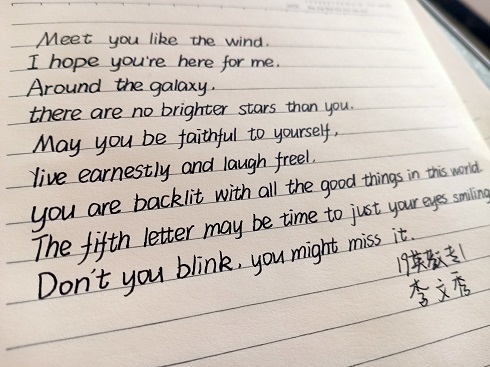 Meet you like the wind.
I hope you're here for me.
Around the galaxy.
there are no brighter stars than you.
May you be faithful to yourself,
live earnestly and laugh freel.
you are backlit with all the good things in this world.
The fifth letter may be time to just your eyes smiling
Don't you blink, you might miss it.
19英教专1
李文秀